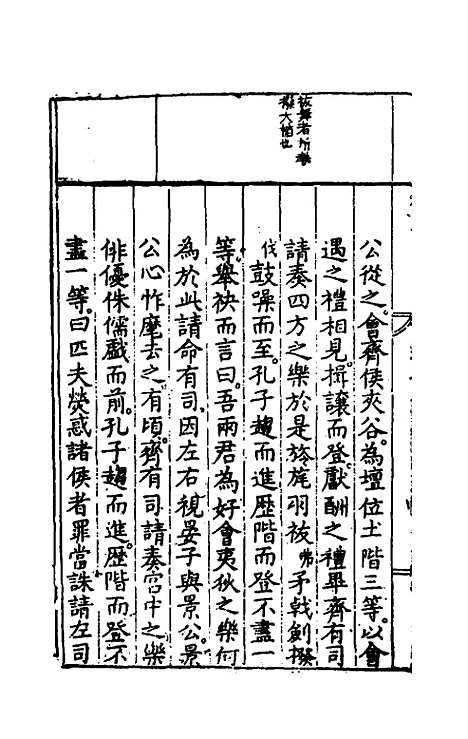 祓舞者所執
撥大楯也
公從之會齊侯夾谷為壇位土階三等以會
遇之禮相見揖讓而登獻酬之禮畢齊有司
請奏四方之樂於是旍旄羽祓弗矛戟劍撥
伐鼓譟而至孔子趨而進歷階而登不盡一
等舉袂而言曰吾兩君為好會夷狄之樂何
為於此請命有司因左右視晏子與景公景
公心怍麾去之有頃齊有司請奏宮中之樂
俳優侏儒戲而前孔子趨而進歷階而登不
盡一等曰匹夫熒惑諸侯者罪當誅請左司